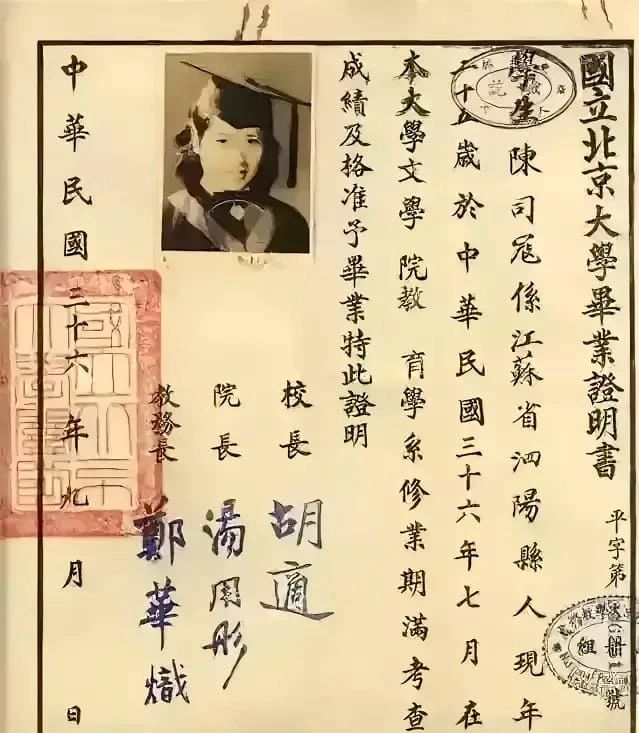 國立北京大學畢業證明書
平字第 號
學生陳司寇係江蘇省泗陽縣人現年
二十五歲於中華民國三十六年七月在
本大學文學院教育學系修業期滿考查
成績及格准予畢業特此證明
校長 胡適
院長 湯用彤
教務長 鄭華熾
中華民國三十六年九月 日
組